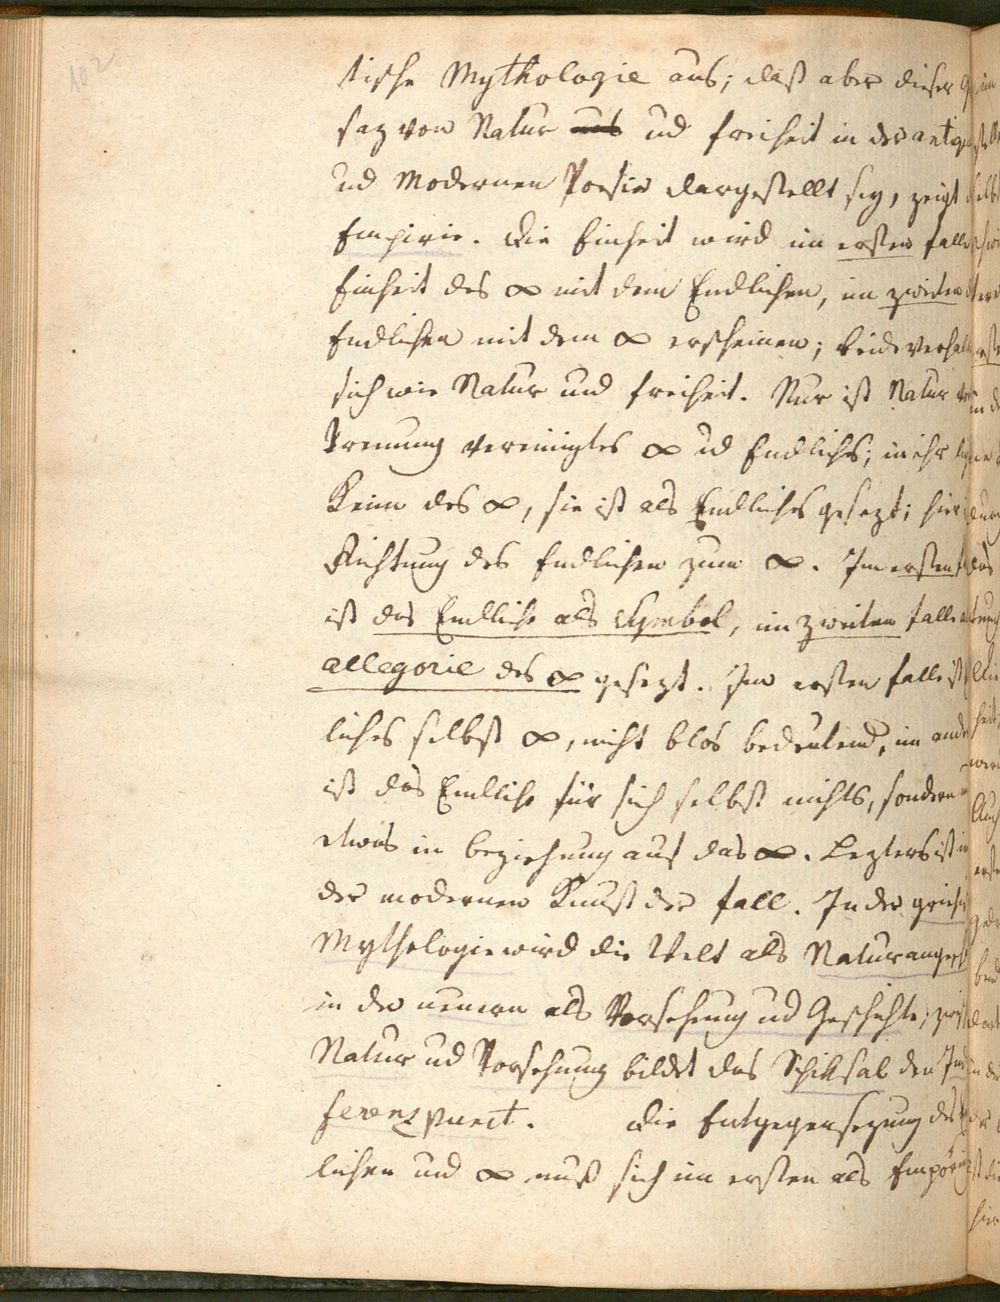 102
tische Mythologie aus; daß aber dieser
saz von Natur aus ud Freiheit in der
ud Modernen Poesie dargestellt sey, zeigt
Empirie. Die Einheit wird im ersten Falle
Einheit des ∞ mit dem Endlichen, im zweiten
Endlichen mit dem ∞ erscheinen; beide verhalt
sich wie Natur und Freiheit. Nur ist Natur vor
Trennung vereinigtes ∞ ud Endliches; in ihr
Keim des ∞, sie ist als Endliches gesezt; hier
Richtung des Endlichen zum ∞. Im ersten
ist das Endliche als Symbol, im zweiten Falle a
allegorie des ∞ gesezt. Im ersten Falle ist
liches selbst ∞, nicht blos bedeutend, im ande
ist das Endliche für sich selbst nichts, sondern
etwas in beziehung auf das ∞. Lezteres ist in
der modernen Kunst der Fall. In der griech
Mythologie wird die Welt als Natur anges
in der neuern als Vorsehung ud Geschichte; zwis
Natur ud Vorsehung bildet das Schiksal den Ind
ferenzpunct. Die Entgegensezung des
lichen und ∞ muß sich im ersten als Empörung